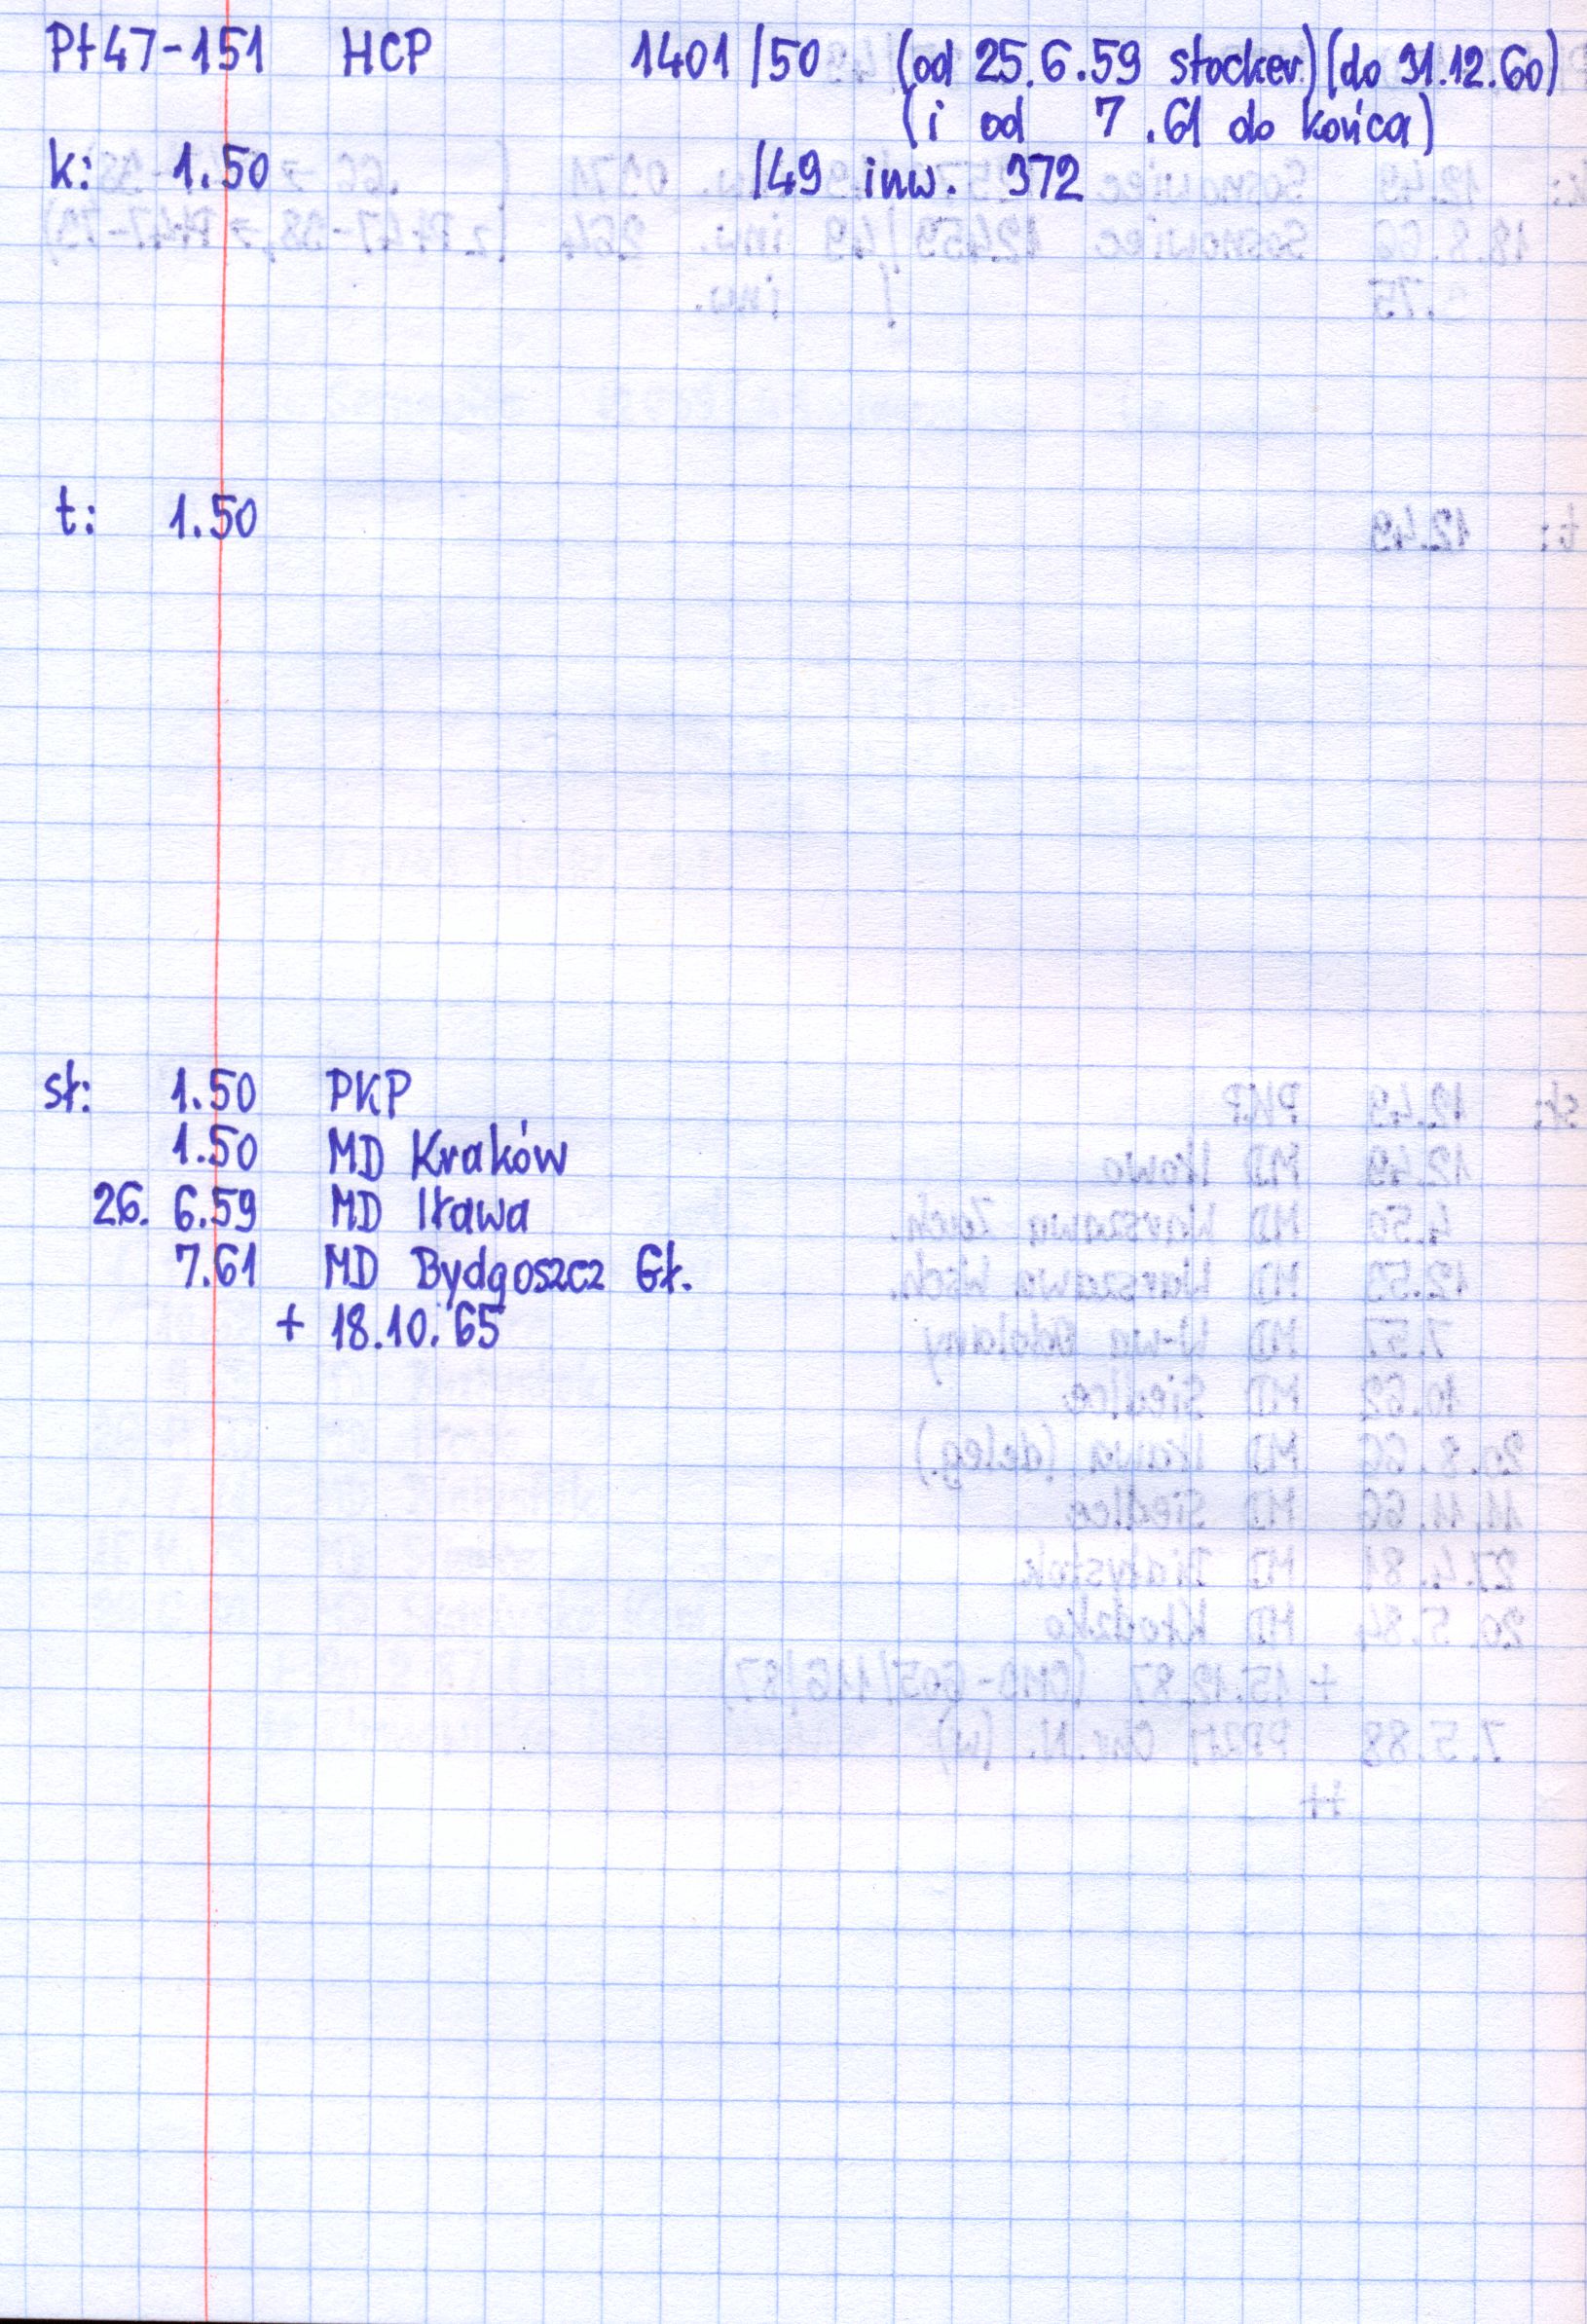 Pt47-151 HCP 1401/50 (od 25.6.59 stocker) (do 31.12.60)
(i od 7.61 do końca)
k: 1.50 /49 inw. 372
t: 1.50
sł: 1.50 PKP
1.50 MD Kraków
26. 6.59 MD Iława
7.61 MD Bydgoszcz Gł.
+ 18.10.65